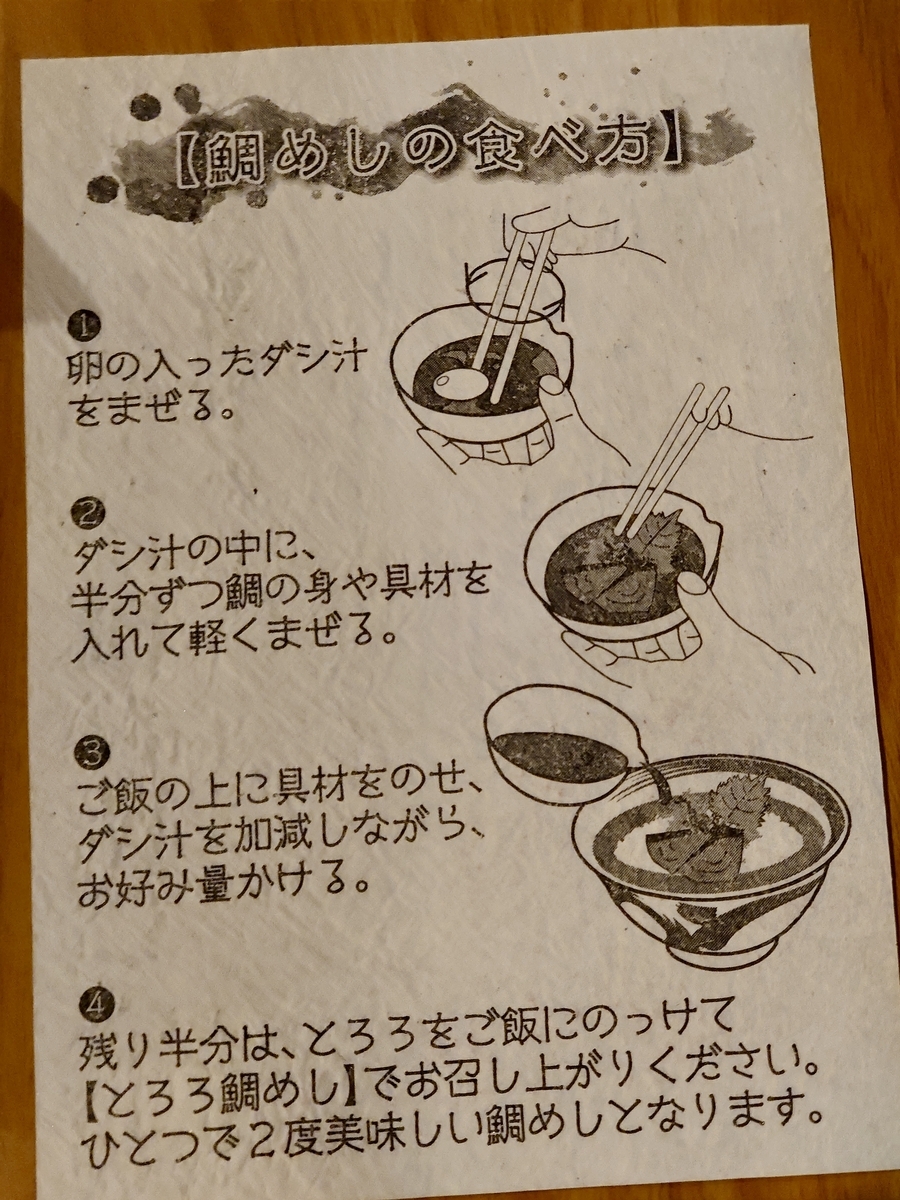 【鯛めしの食べ方】
❶
卵の入ったダシ汁
をまぜる。
❷
ダシ汁の中に、
半分ずつ鯛の身や具材を
入れて軽くまぜる。
❸
ご飯の上に具材をのせ、
ダシ汁を加減しながら、
お好み量かける。
❹
残り半分は、とろろをご飯にのっけて
【とろろ鯛めし】でお召し上がりください。
ひとつで2度美味しい鯛めしとなります。